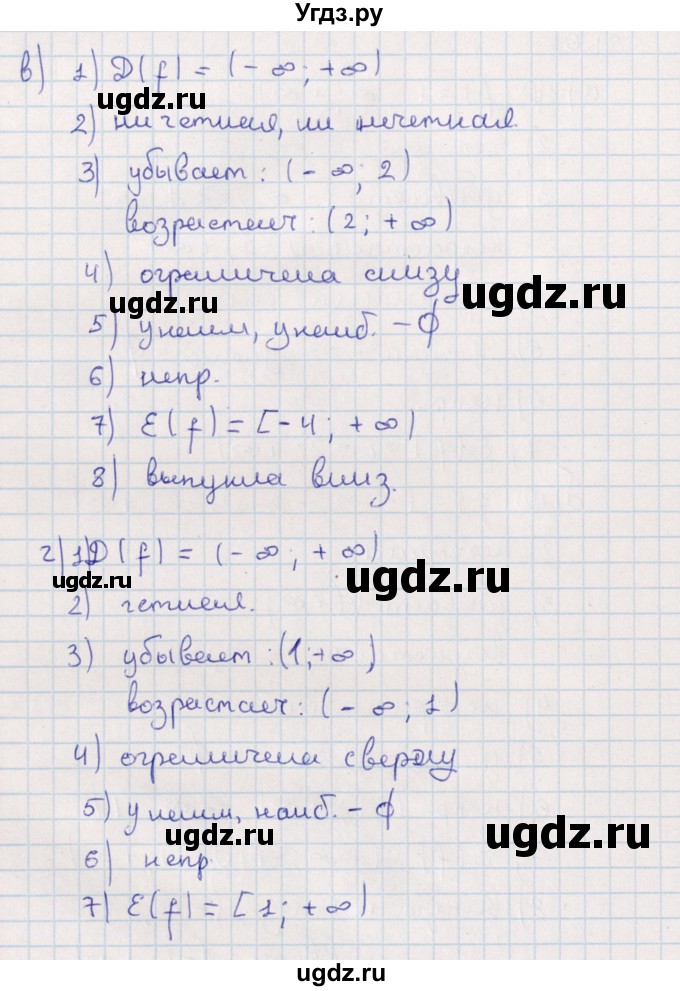 Угдз.ру
в) 1) D(f) = (-∞; +∞)
ugdz.ru
2) ни четная, ни нечетная.
3) убывает: (-∞; 2)
возрастает: (2; +∞)
4) ограничена снизу
ugdz.ru
ugdz.ru
5) yнаим, yнаиб. - ∅
6) непр.
7) E(f) = [-4; +∞)
8) выпукла вниз.
г) 1) D(f) = (-∞; +∞)
ugdz.ru
ugdz.ru
2) четная.
3) убывает: (1; +∞)
возрастает: (-∞; 1)
4) ограничена сверху
5) yнаим, наиб. - ∅
ugdz.ru
ugdz.ru
6) непр
7) E(f) = [1; +∞)
ugdz.ru